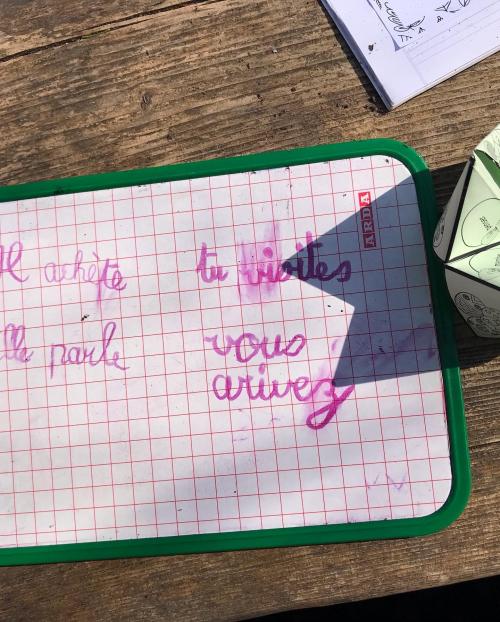 Il achète tu visites
elle parle vous
arivez
ARDA